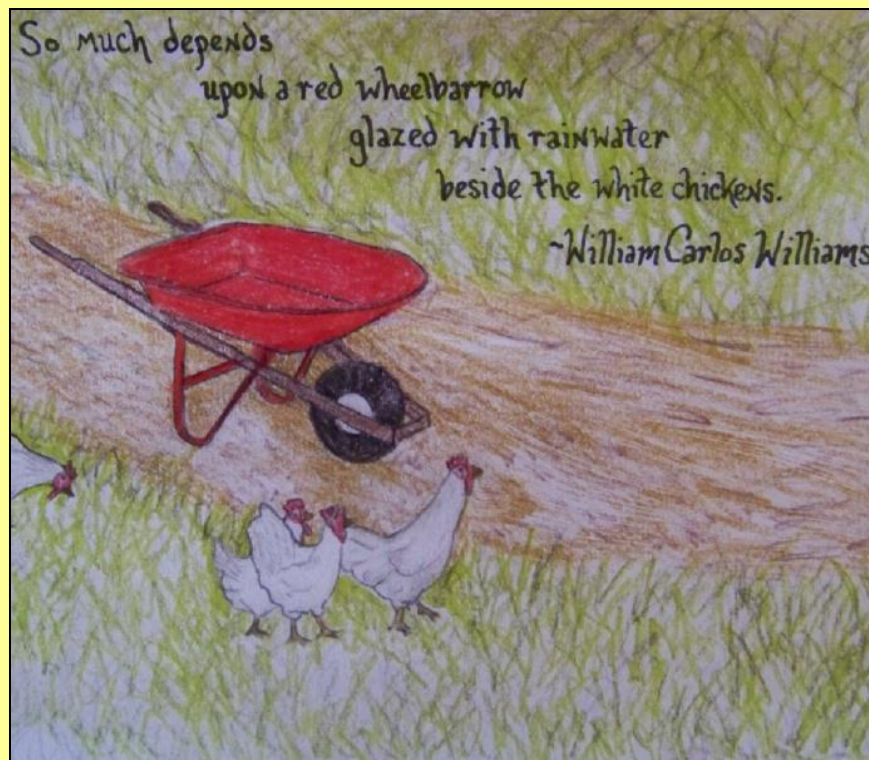 So much depends
upon a red wheelbarrow
glazed with rainwater
beside the white chickens.
~William Carlos Williams